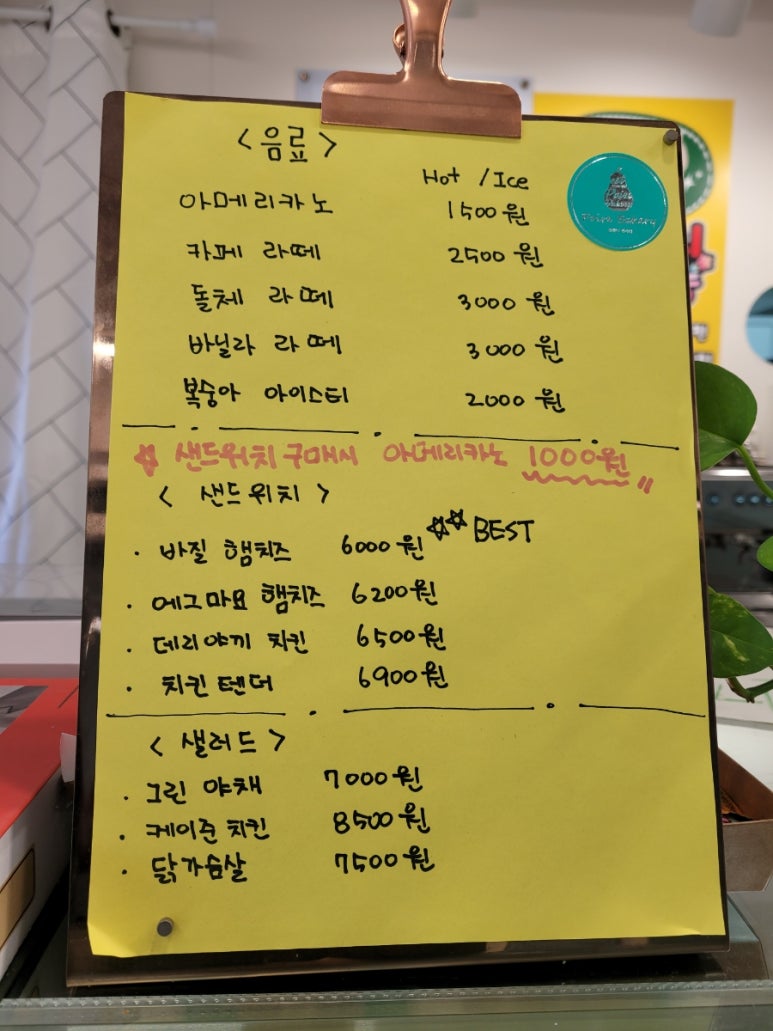 <음료>
Hot / Ice
아메리카노 1500원
카페 라떼 2500원
돌체 라떼 3000원
바닐라 라떼 3000원
복숭아 아이스티 2000원
☆ 샌드위치 구매시 아메리카노 1000원 "
< 샌드위치 >
· 바질 햄치즈 6000원 ☆☆ BEST
· 에그마요 햄치즈 6200원
· 데리야끼 치킨 6500원
· 치킨텐더 6900원
< 샐러드 >
· 그린 야채 7000원
· 케이준 치킨 8500원
· 닭가슴살 7500원